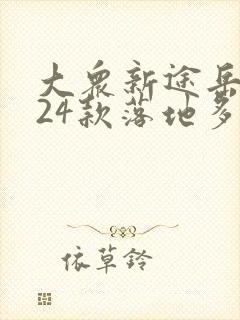 大众新途岳
24款落地多
依草铃